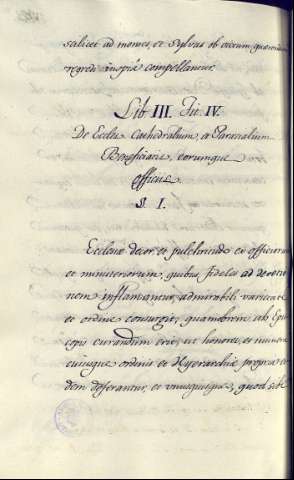 scilicet ad montes, et sylvas ob viarum,
regredi inopia compellantur.
Lib III. Tit IV.
De Eccles. Cathedralium, et Parochialium
Beneficiatis, eorumque
officiis.
§. I.
Ecclesiæ decor, et pulchritudo ex officiorum
et ministeriorum, quibus fideles ad devotio
nem inflamantur, admirabili varietate
et ordine consurgit, quamobrem ab Epis
copis curandum erit, ut honores, et munera
cuiusque ordinis et Hyerarchiæ propria ei
dem deferantur, et unusquisque, quod sibi